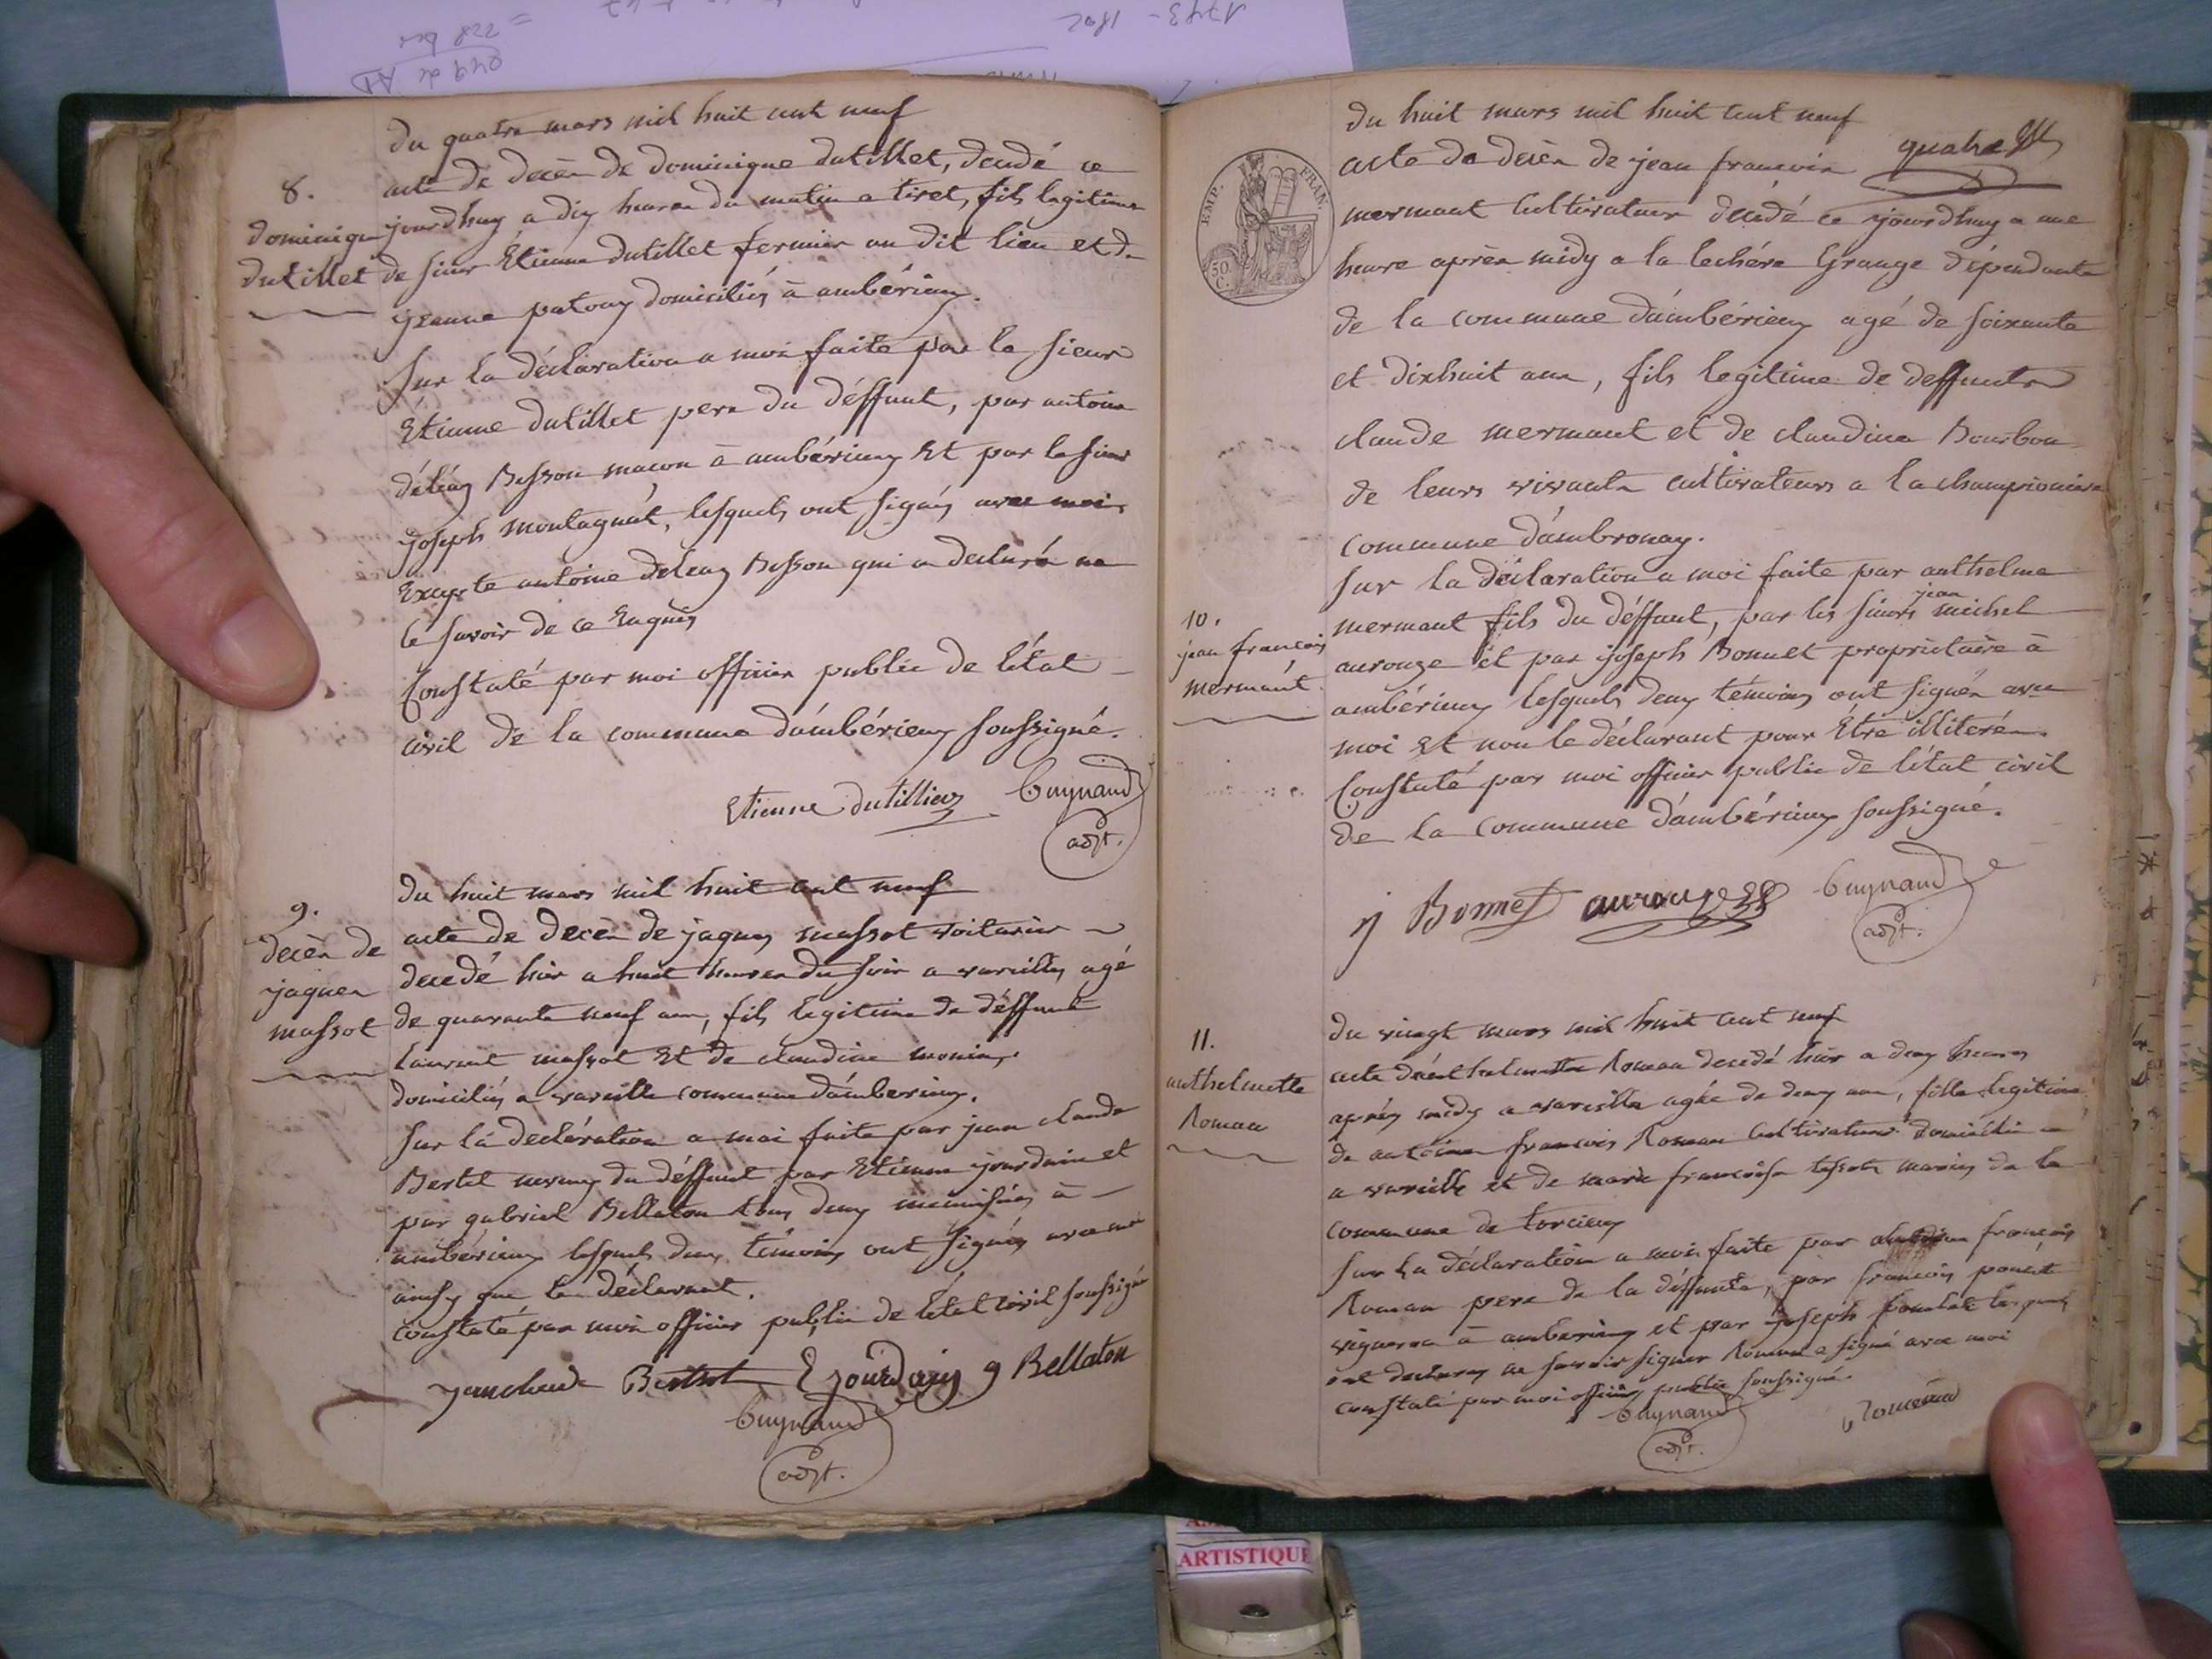 du quatre mars mil huit cent neuf
8.
dominique
dutillet
acte de decès de dominique dutillet, décédé ce
jourdhuy a dix heures du matin a tiret, fils legitime
de sieur Étienne dutillet fermier au dit lieu et de
jeanne patouy domiciliés à ambérieux.
Sur la déclaration a moi faite par le sieur
Etienne dutillet pere du déffunt, par antoine
déléaz Besson maçon à ambérieux Et par le sieur
joseph montagnat, lesquels ont signés avec moi,
Excepté antoine deleaz Besson qui a declaré ne
le savoir de ce Enquis
Constaté par moi officier public de l'état
civil de la commune d'ambérieux soussigné.
Etienne dutillier Guynand
adjt.
du huit mars mil huit cent neuf
9.
decès de
jaques
massot
acte de decès de jaques massot voiturier
decedé hier a huit heures du soir a vareilles, agé
de quarante neuf ans, fils legitime de déffunt
laurent massot Et de claudine monin,
domiciliés a vareille commune d'amberieux.
Sur la declération a moi faite par jean claude
Bertet neveux du déffunt par Etienne jourdain et
par gabriel Bellaton tous deux menuisiers à
ambérieux lesquels deux témoins ont signés avec moi
ainsy que le déclarant.
Constaté par moi officier public de l'état civil soussigné
jean claude Bertet E jourdain g Bellaton
Guynand
adjt.
du huit mars mil huit cent neuf
quatre
EMP. FRAN.
50 C.
acte de decès de jean francois
mermant Cultivateur décédé ce jourdhuy a une
heure après midy a la lechére Grange dépendante
de la commune d'ambérieux agé de soixante
et dixhuit ans, fils legitime de deffunts
claude mermant et de claudine Bourbon
de leurs vivants cultivateurs a la championiere
commune d'ambronay.
Sur la déclaration a moi faite par anthelme
10.
jean francois
mermant
mermant fils du déffunt, par les sieurs jean michel
aurouze et par joseph Bonnet propriétaire à
ambérieux lesquels deux témoins ont signés avec
moi Et non le déclarant pour Être illiterés.
Constaté par moi officier public de l'état civil
de la commune d'ambérieux soussigné.
j Bonnet aurouze Guynand
adjt.
du vingt mars mil huit cent neuf
11.
anthelmette
Roman
acte d'anthelmette Roman decedé hier a deux heures
après midy a vareilles agée de deux ans, fille legitime
de antoine francois Roman Cultivateur domicilié
a vareille et de marie francoise tessot mariés de la
commune de torcieux
Sur la déclaration a moi faite par francois
Roman pere de la déffunte, par francois poncet
vigneron à amberieux et par joseph lesquels
ont declarez ne savoir signer Roman a signé avec moi
Constaté par moi officier public soussigné.
Guynand Roman
adjt.
ARTISTIQUE
1793- 1802
228 bis
049 de AD